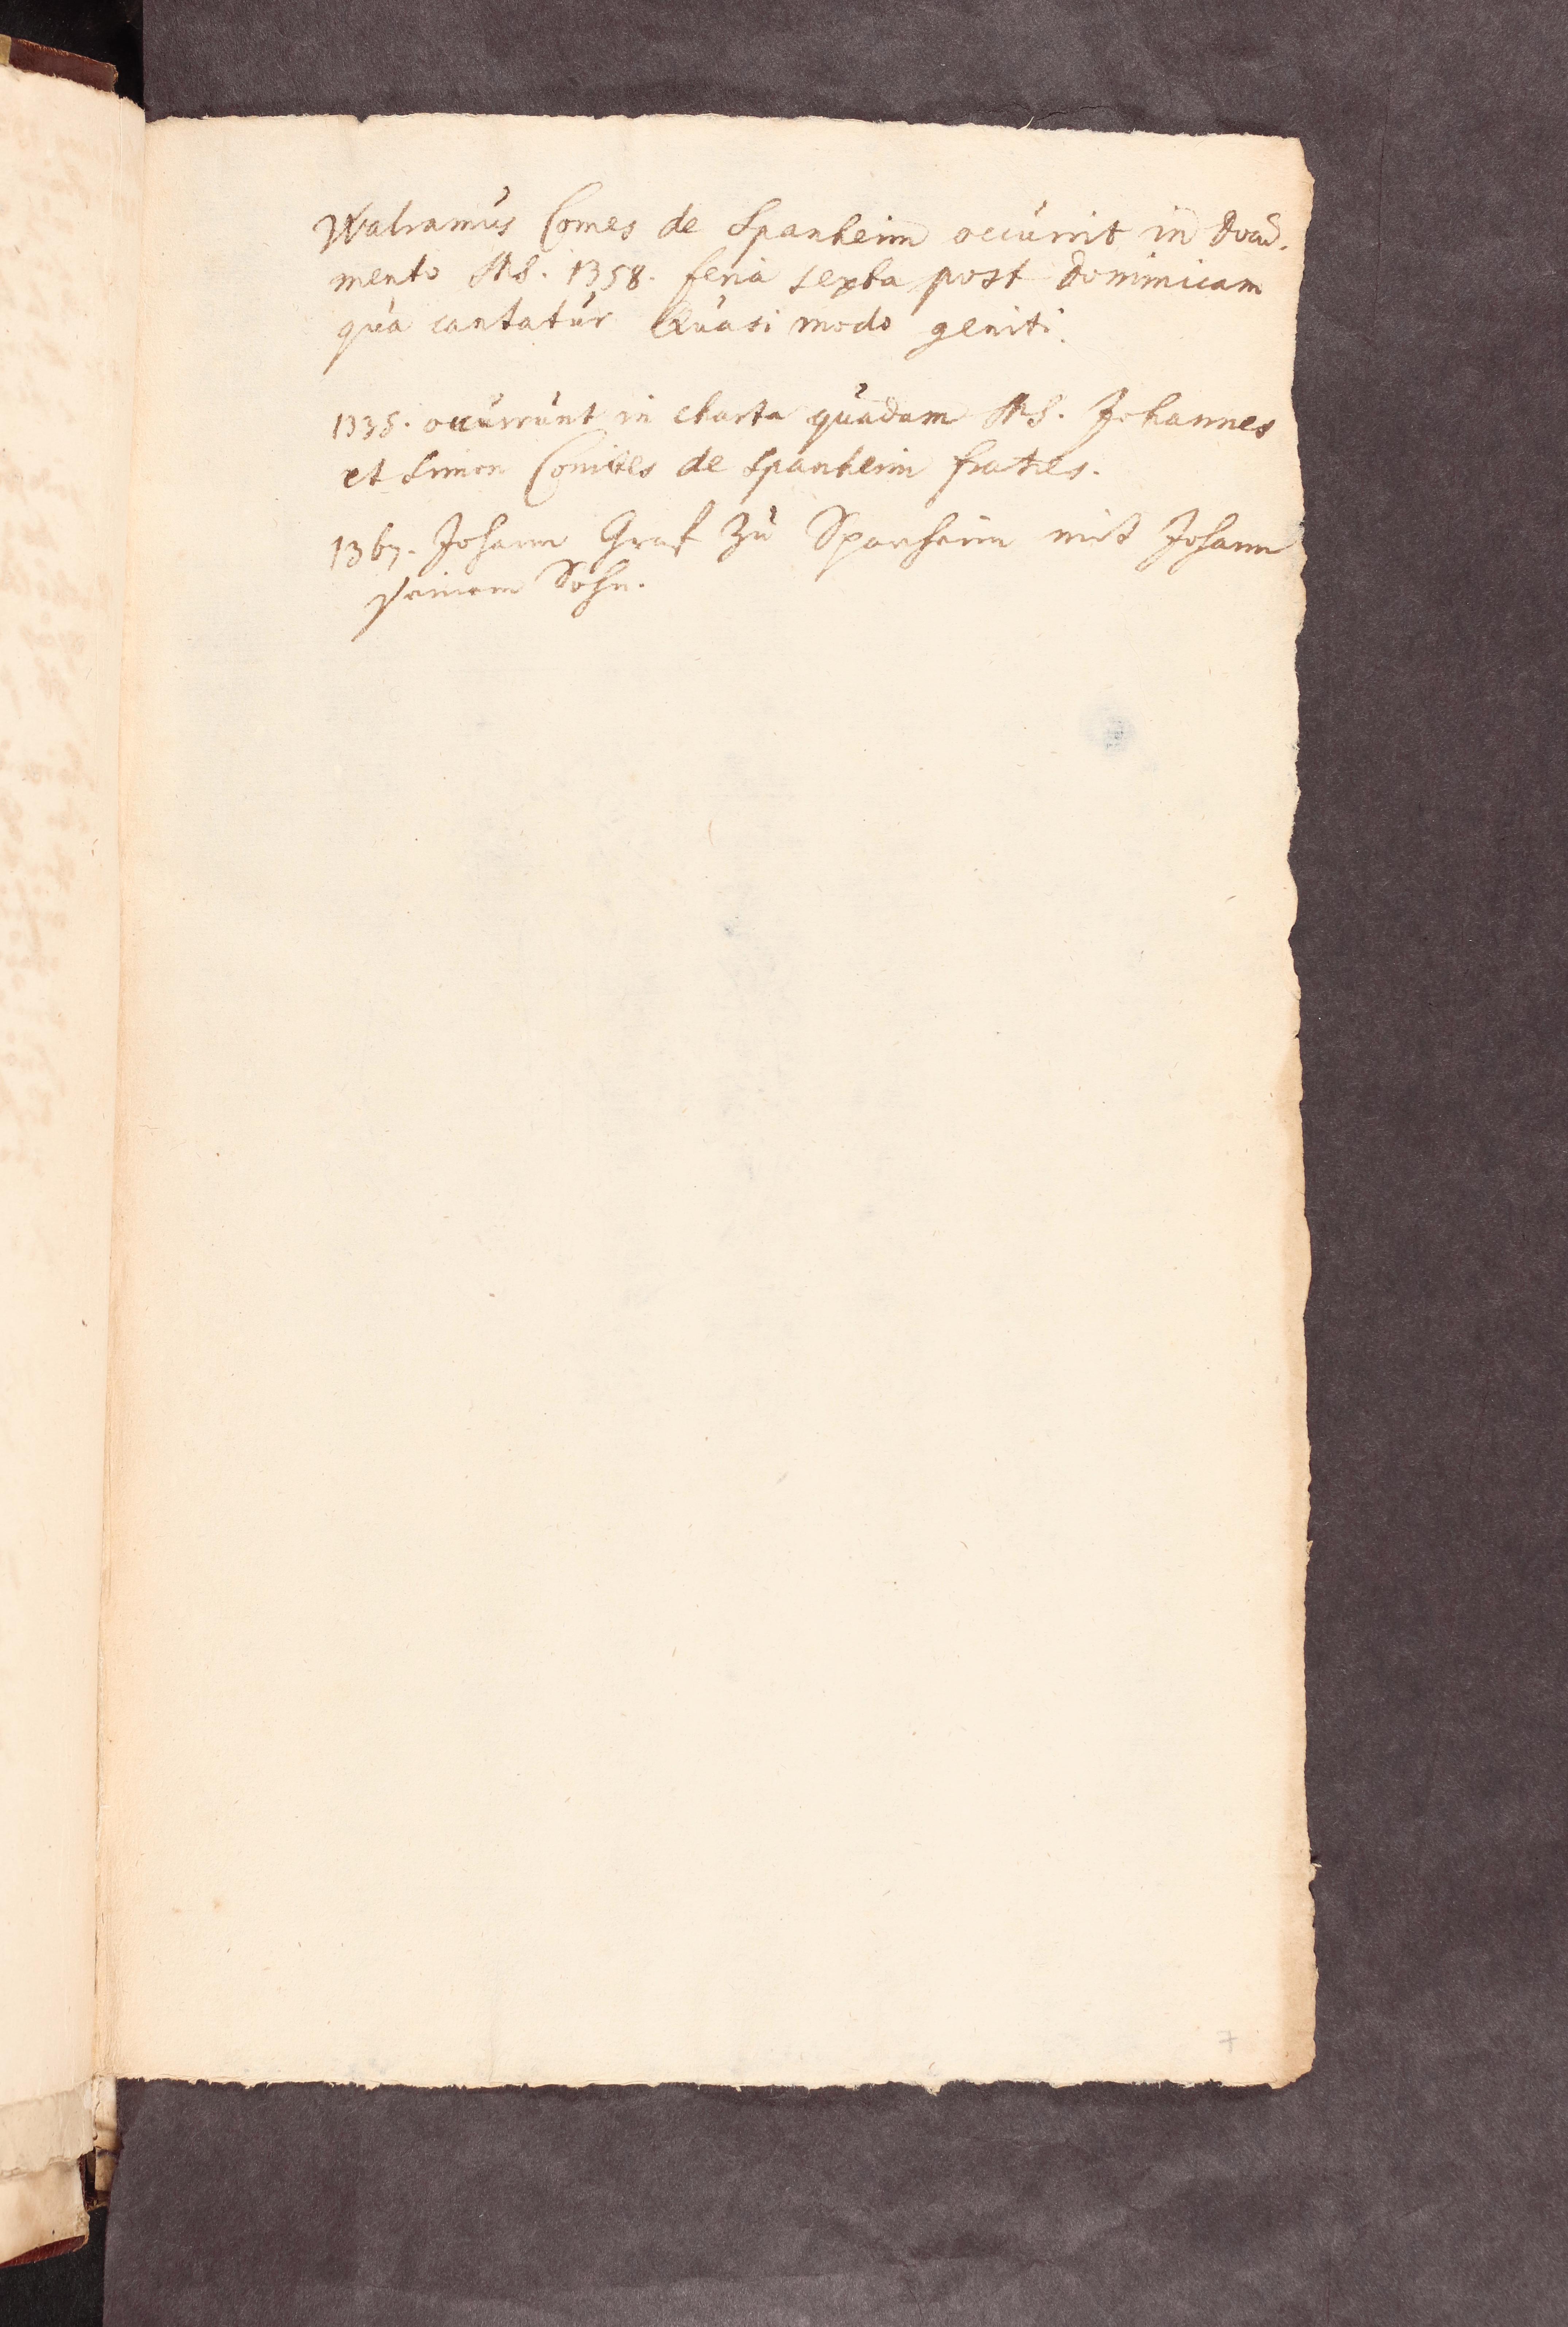 Walramus Comes de Spanheim occurrit in Docu-
mento MS. 1358. feria sexta post Dominicam
qua cantatur Quasi modo geniti.
1338. occurrunt in charta quadam MS. Johannes
et Simon Comites de Spanheim fratres.
1367. Johann Graf zu Spanheim mit Johann
seinem Sohn.
7